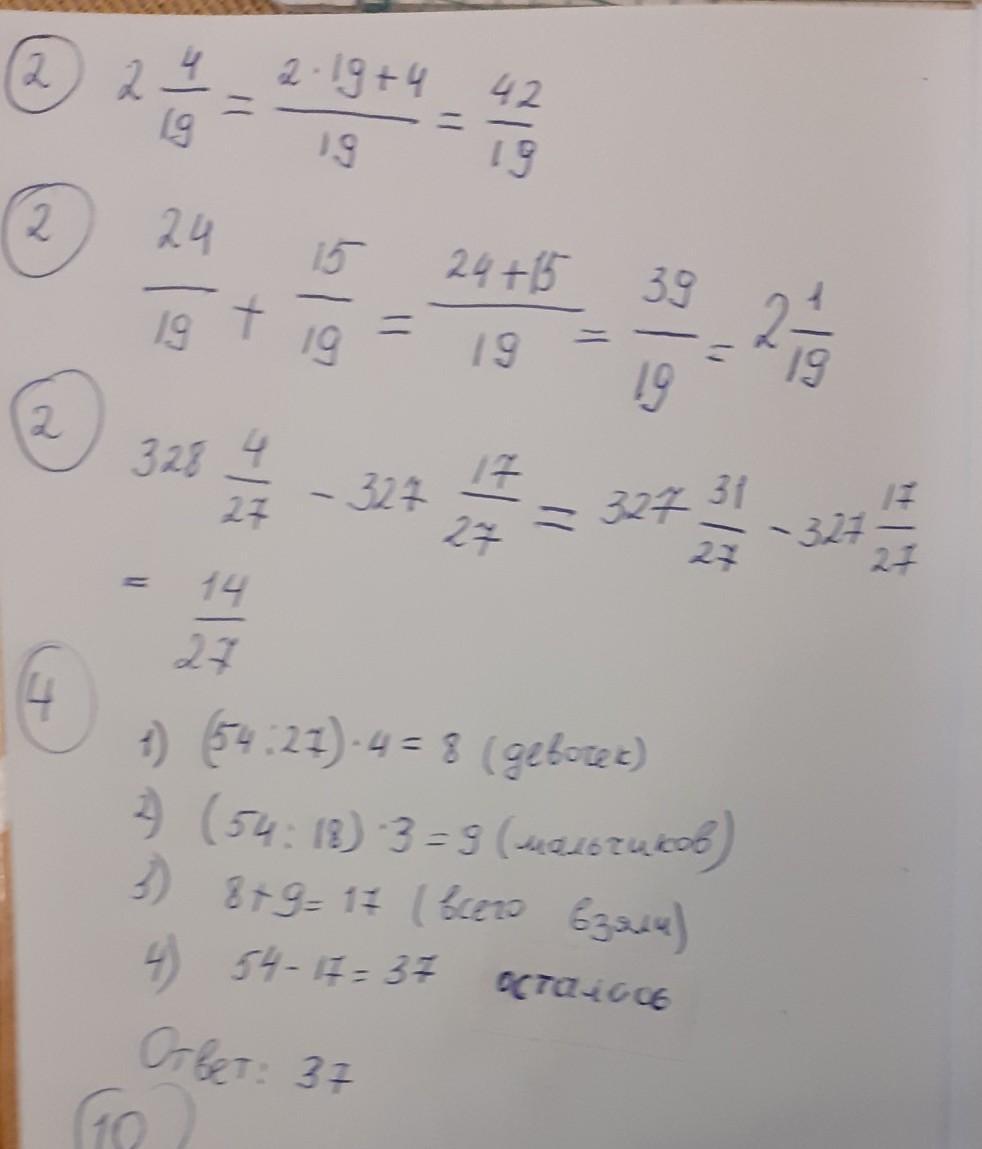 ② 2 4/19 = (2·19+4)/19 = 42/19
② 24/19 + 15/19 = (24+15)/19 = 39/19 = 2 1/19
② 328 4/27 - 327 17/27 = 327 31/27 - 327 17/27
= 14/27
④
1) (54:27)·4=8 (девочек)
2) (54:18)·3=9 (мальчиков)
3) 8+9=17 (всего взяли)
4) 54-17=37 осталось
Ответ: 37
⑩